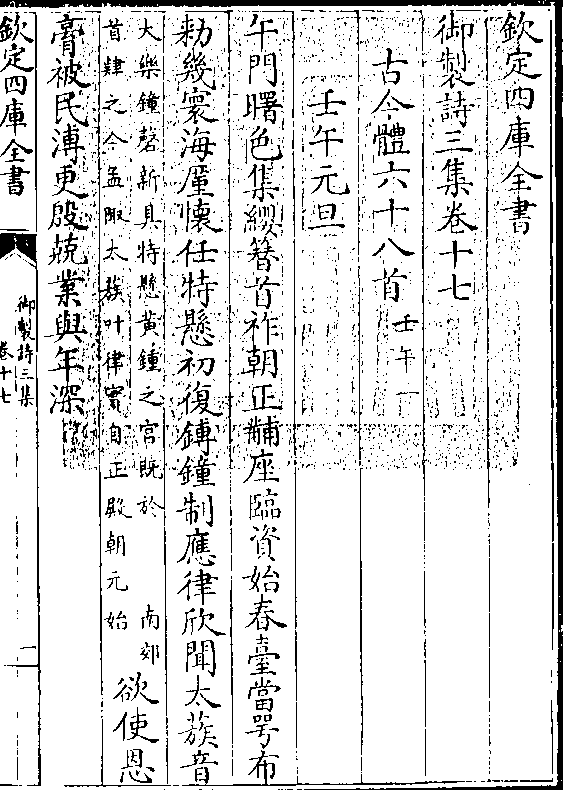 欽定四庫全書
御製詩三集卷十七
古今體六十八首 壬午一
壬午元旦
午門曙色集纓簪首祚朝正黼座臨資始春臺當咢布
勑幾寰海廑懷任特懸初復鎛鐘制應律欣聞太蔟音
大樂鐘磬新具特懸黄鍾之宫既於 南郊
首肄之今孟陬太蔟叶律寔自正殿朝元始
欲使恩
膏被民溥更殷兢業與年深
欽定四庫全書
御製詩三集
卷十七